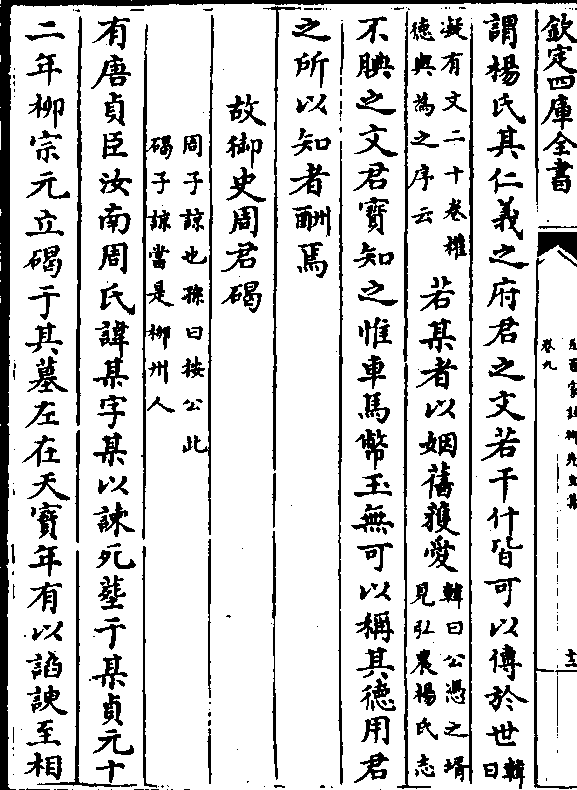 欽定四庫全書
卷九
謂楊氏其仁義之府君之文若干什皆可以傳於世韓曰
凝有文二十卷權德與為之序云若某者以姻舊獲愛韓曰公憑之壻見弘農楊氏志
不腆之文君寶知之惟車馬幣玉無可以稱其德用君
之所以知者酬焉
故御史周君碣
周子諒也孫曰按公此碣子諒當是柳州人
有唐貞臣汝南周氏諱某字某以諫死塟于某貞元十
二年柳宗元立碣于其墓左在天寶年有以諂諛至相